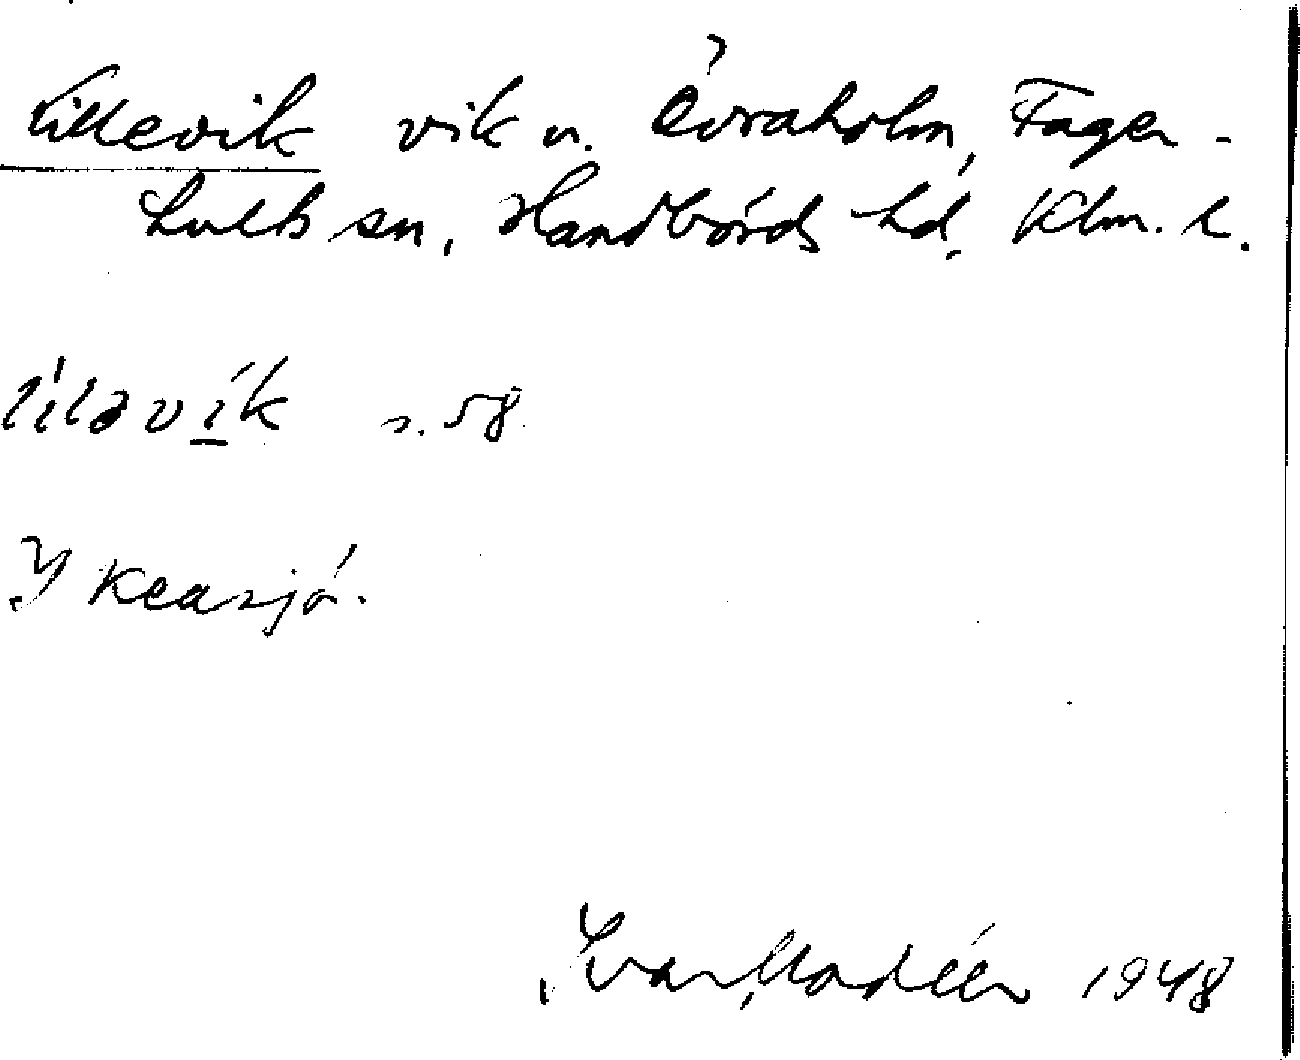 Lillevik vik v. Övraholm, Fager-
hults sn, Handbörds hd, Klm. l.
lilavik s. 58.
I Kleasjö.
Ivar Modéer 1948